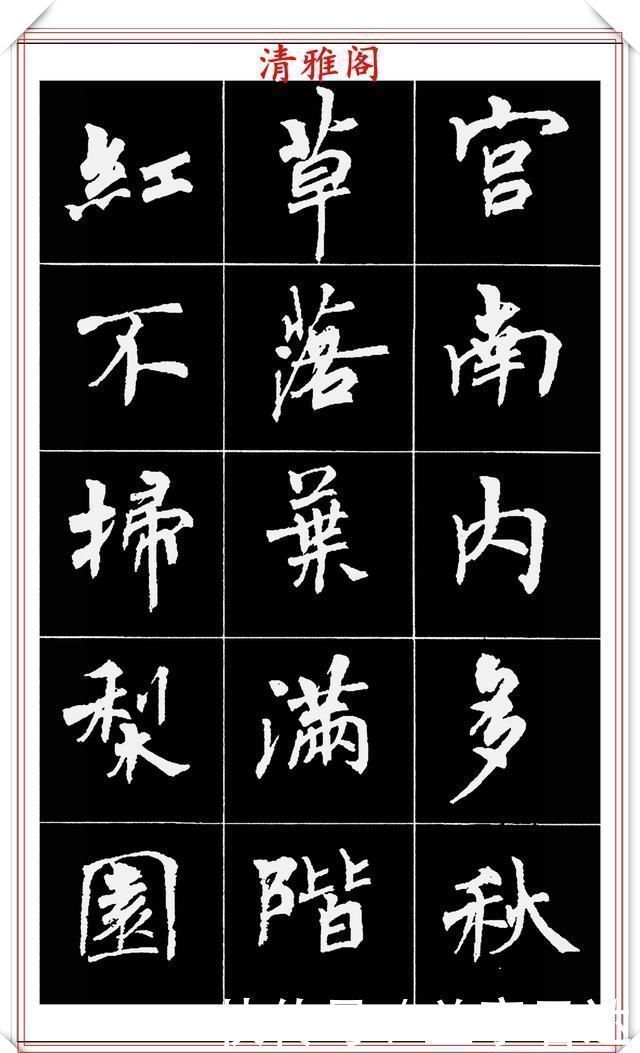 清雅阁
宫南内多秋
草落葉满階
紅不掃梨園